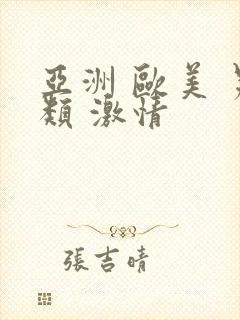 亞洲 歐美
類 激情
張吉晴